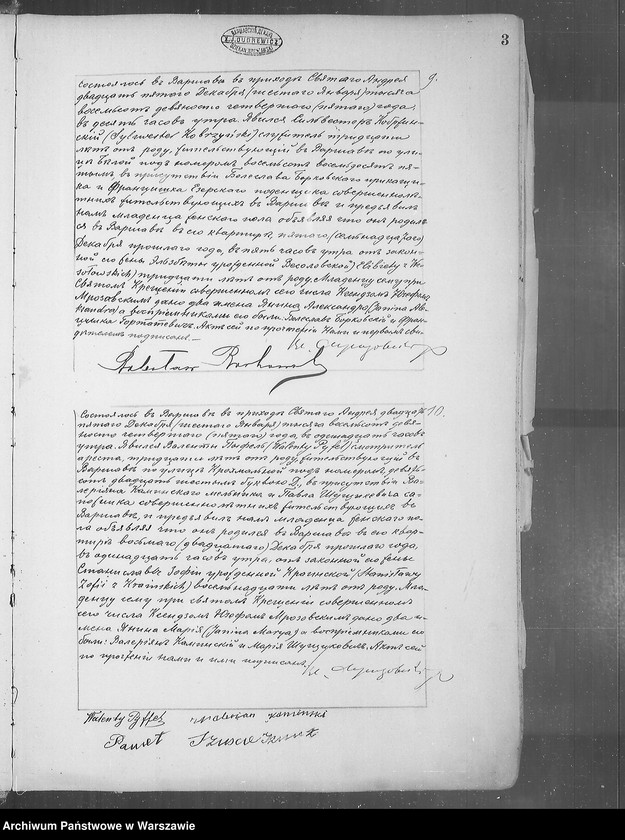 3
9.
Состоялось въ Варшавѣ въ приходѣ Святаго Андрея
двадцать пятаго Декабря /шестаго Января/ тысяча
восемьсотъ девяносто четвертаго /пятаго/ года,
въ десять часовъ утра. Явился Сильвестеръ Кобржин-
скій /Sylwester Kobrzyński/ служитель тридцати
лѣтъ отъ роду, жительствующій въ Варшавѣ по ули-
цѣ Бѣлой подъ номеромъ восемьсотъ восемьдесятъ пя-
тымъ, въ присутствіи Болеслава Борковскаго приказчи-
ка и Францишка Езерскаго поденщика совершеннолѣт-
нихъ жительствующихъ въ Варшавѣ и предъявилъ
намъ младенца женскаго пола объявляя что онъ родил-
ся въ Варшавѣ въ его квартирѣ, пятаго /семнадцатаго/
Декабря прошлаго года, въ пять часовъ утра, отъ закон-
ной его жены Елизбѣты урожденной Весоловской /Elżbiety z We-
sołowskich/ тридцати лѣтъ отъ роду. Младенцу сему при
Святомъ Крещеніи совершенномъ сего числа Ксендзомъ
Мрозовскимъ дано два имена Янина, Александра /Janina Ale-
ksandra/ а воспріемниками его были: Болеславъ Борковскій и Фран-
цишка Акт сей по прочтеніи Нами и первымъ сви-
дѣтелемъ подписанъ.
10.
Состоялось въ Варшавѣ въ приходѣ Святаго Андрея двадцать
пятаго Декабря /шестаго Января/ тысяча восемьсотъ девя-
носто четвертаго /пятаго/ года, въ одинадцать часовъ
утра. Явился Валенты Пыфель /Walenty Pyffel/ смотритель
ареста, тридцати лѣтъ отъ роду, жительствующій въ
Варшавѣ по улицѣ Крохмальной подъ номеромъ девять-
сотъ двадцать шестымъ буквою Д, въ присутствіи Ва-
леріяна Каминскаго мельника и Павла са-
пожника совершеннолѣтнихъ жительствующихъ въ
Варшавѣ, и предъявилъ намъ младенца женскаго по-
ла объявляя что онъ родился въ Варшавѣ въ его квар-
тирѣ восьмаго /двадцатаго/ Декабря прошлаго года,
въ одинадцать часовъ утра, отъ законной его жены
Станиславы Зофіи урожденной Краинской /Stanisławy
Zofii z Kraińskich/ восемнадцати лѣтъ отъ роду. Мла-
денцу сему при святомъ Крещеніи совершенномъ
сего числа Ксендзомъ Мрозовскимъ дано два и-
мена Янина Марія /Janina Marya/ а воспріемниками его
были: Валеріянъ Каминскій и Марія Актъ сей
по прочтеніи нами и ими подписанъ.
Walenty Pyffel Walerian Kamiński
Paweł
Archiwum Państwowe w Warszawie